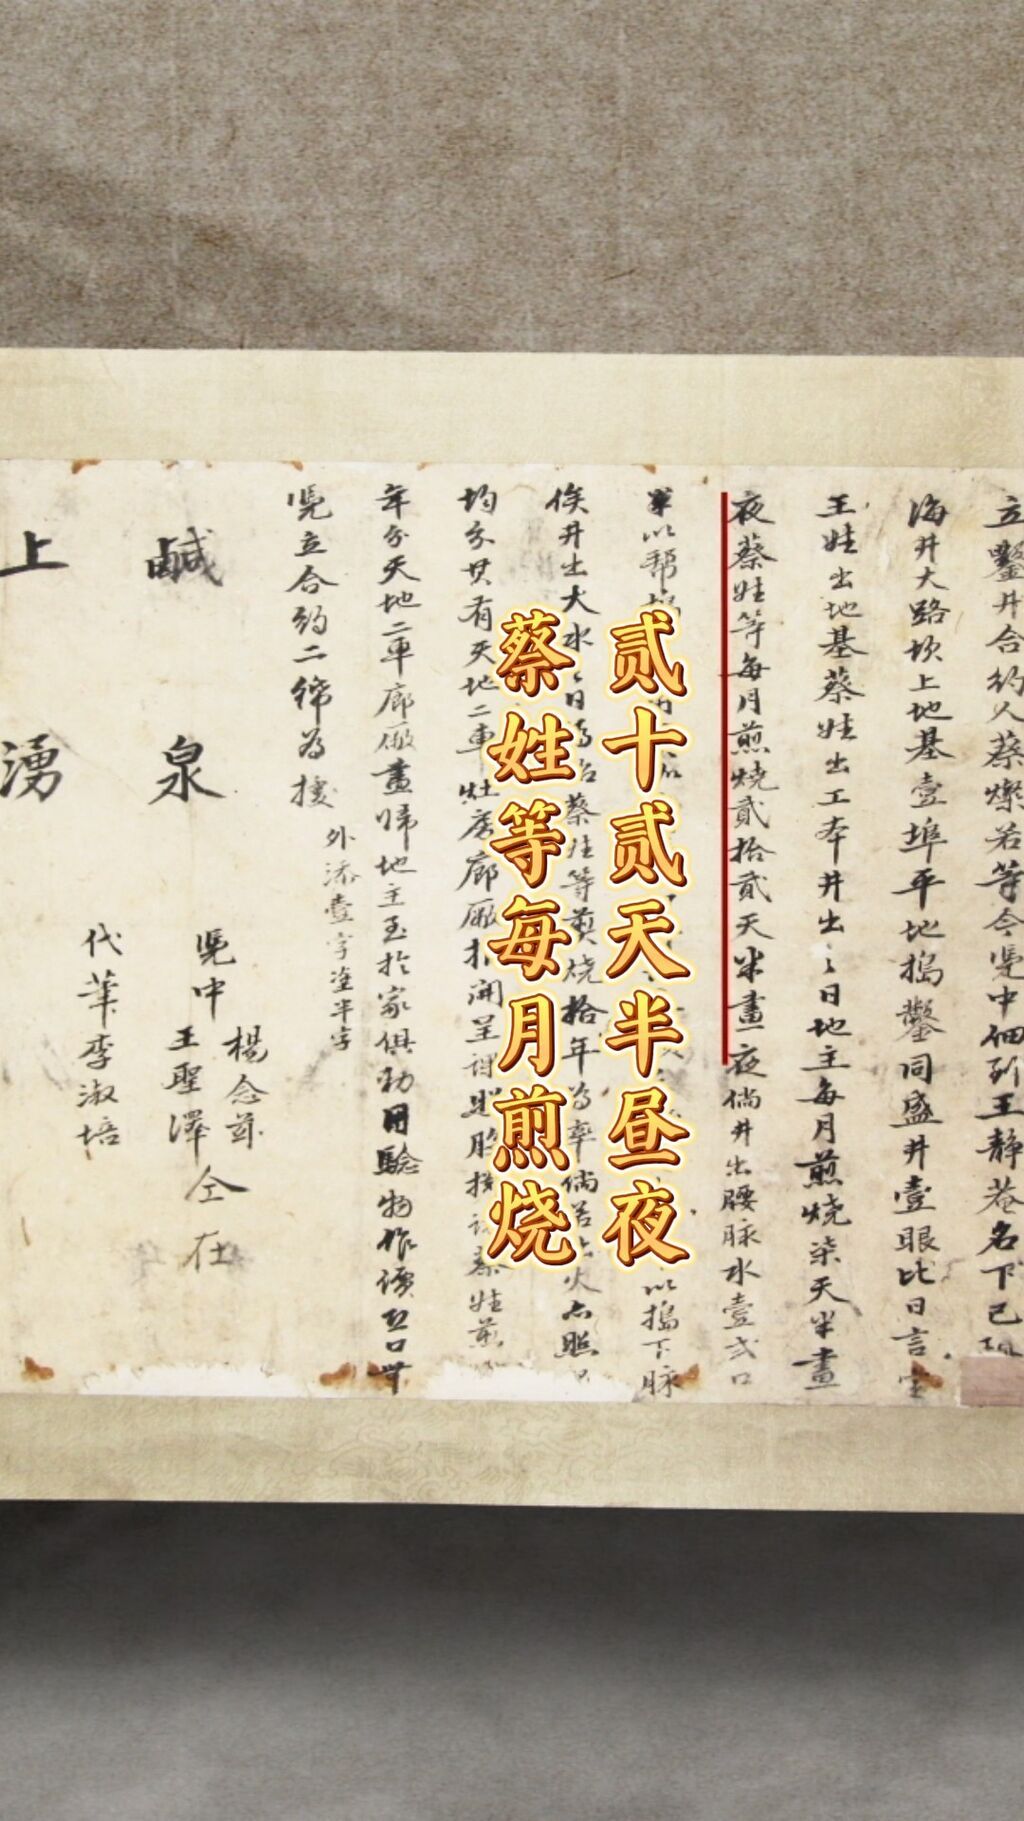 立鑿井合約人蔡燦若等今凴中佃到王靜菴名下已
海井大路坎上地基壹埠平地搗鑿同盛井壹眼比日言定
王姓出地基蔡姓出工本井出之日地主每月煎燒柒天半晝
夜蔡姓等每月煎燒貳拾貳天半晝夜倘井出腰脉水壹弍口
以幫 以搗下脉
俟井出大水之日 蔡姓等煎燒拾年為率倘若出火亦照
均分其有天地二車灶房廊厰 蔡姓煎
年分天地二車廊厰盡歸地主至於家俱動用驗物作價
凴立合約二紙為據
外添壹字塗半字
鹹泉
上湧
凴中
楊念
王聖澤
仝在
代筆李淑培
贰十贰天半昼夜
蔡姓等每月煎烧